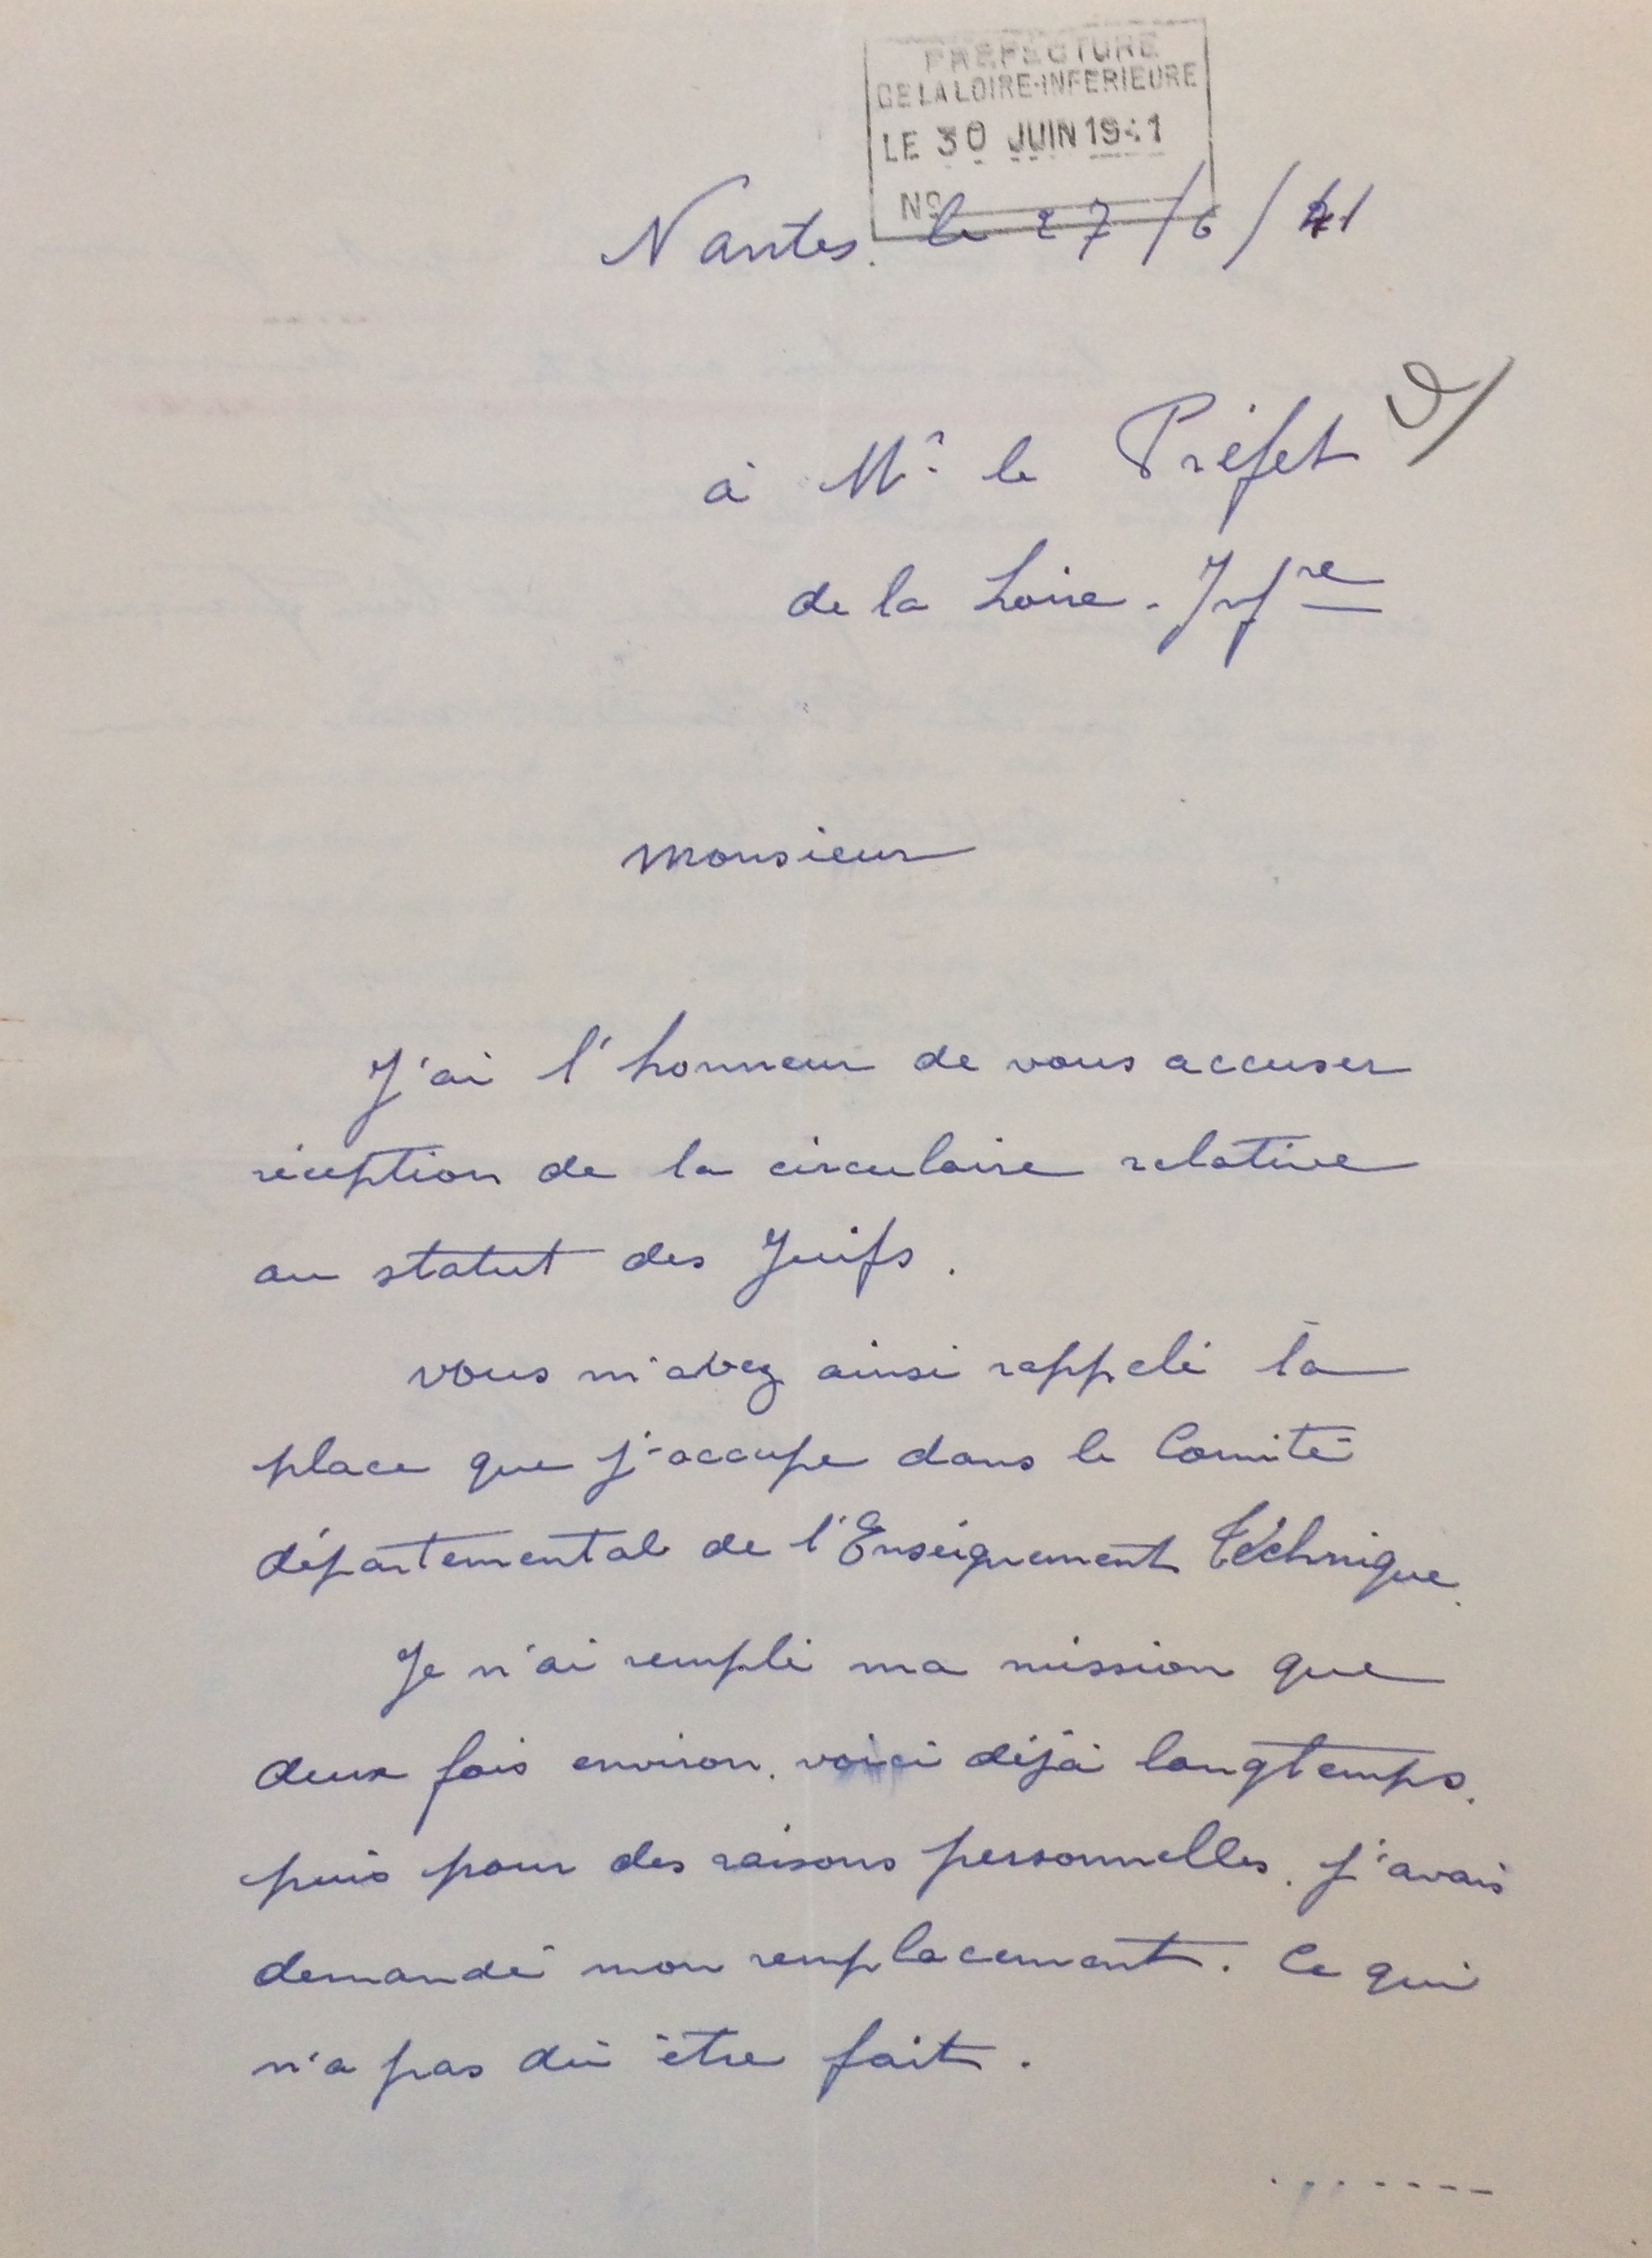 PREFECTURE
DE LA LOIRE-INFERIEURE
LE 30 JUIN 1941
No
Nantes. le 27/6/41
à Mr. le Préfet
de la Loire-Infre
Monsieur
J'ai l'honneur de vous accuser
réception de la circulaire relative
au statut des Juifs.
Vous m'avez ainsi rappelé la
place que j'occupe dans le Comité
départemental de l'Enseignement Téchnique.
Je n'ai rempli ma mission que
deux fois environ. voici déjà longtemps.
puis pour des raisons personnelles. j'avais
demandé mon remplacement. Ce qui
n'a pas dû être fait.
.......